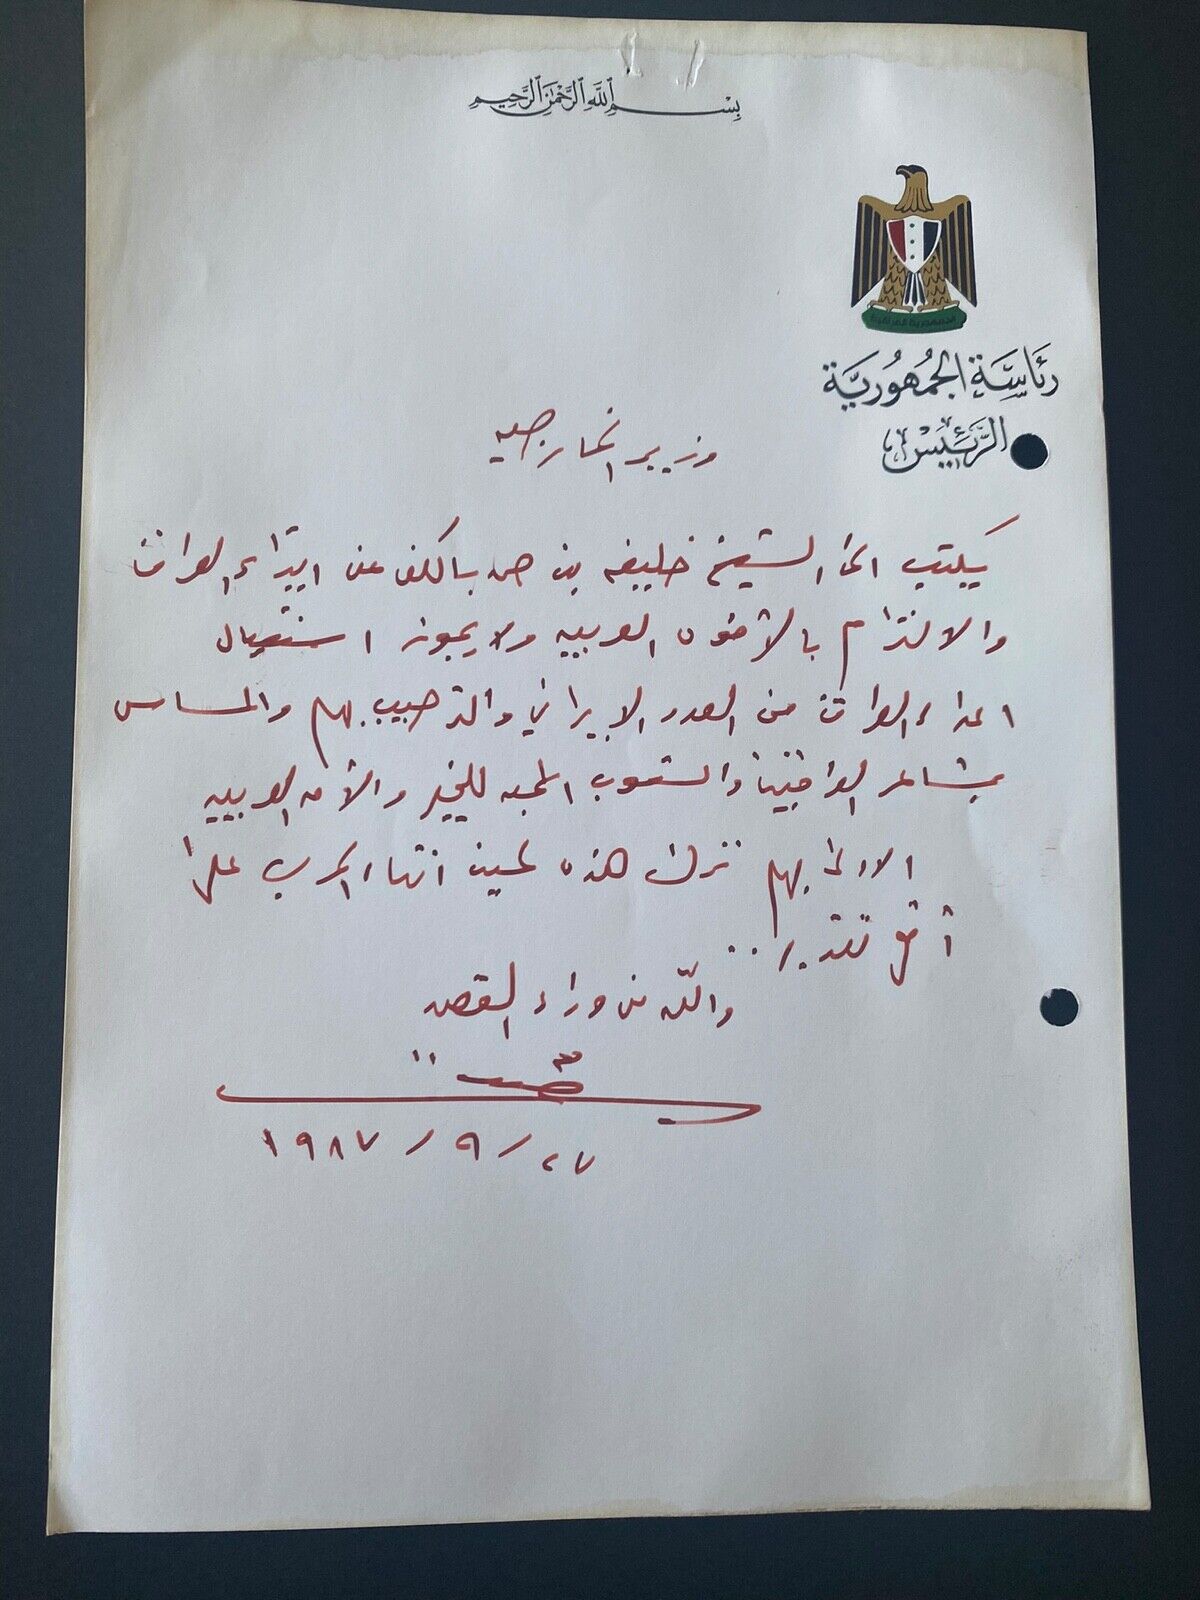 بِسْمِ اللهِ الرَّحْمٰنِ الرَّحِيمِ
رئاسة الجمهورية
الرئيس
وزير الخارجيه
يكتب الى الشيخ خليفه بن حمد بالكف عن ايذاء العراق
والالتزام بالاخوه العربيه ولا يجوز استقبال
اعداء العراق من العدو الايراني والترحيب بهم والمساس
بمشاعر العراقيين والشعوب المحبه للخير والأمه العربيه
الاولى بهم ترك هذه لحين انتهاء الحرب على
أقل تقدير ..
والله من وراء القصد
٢٧ / ٩ / ١٩٨٧